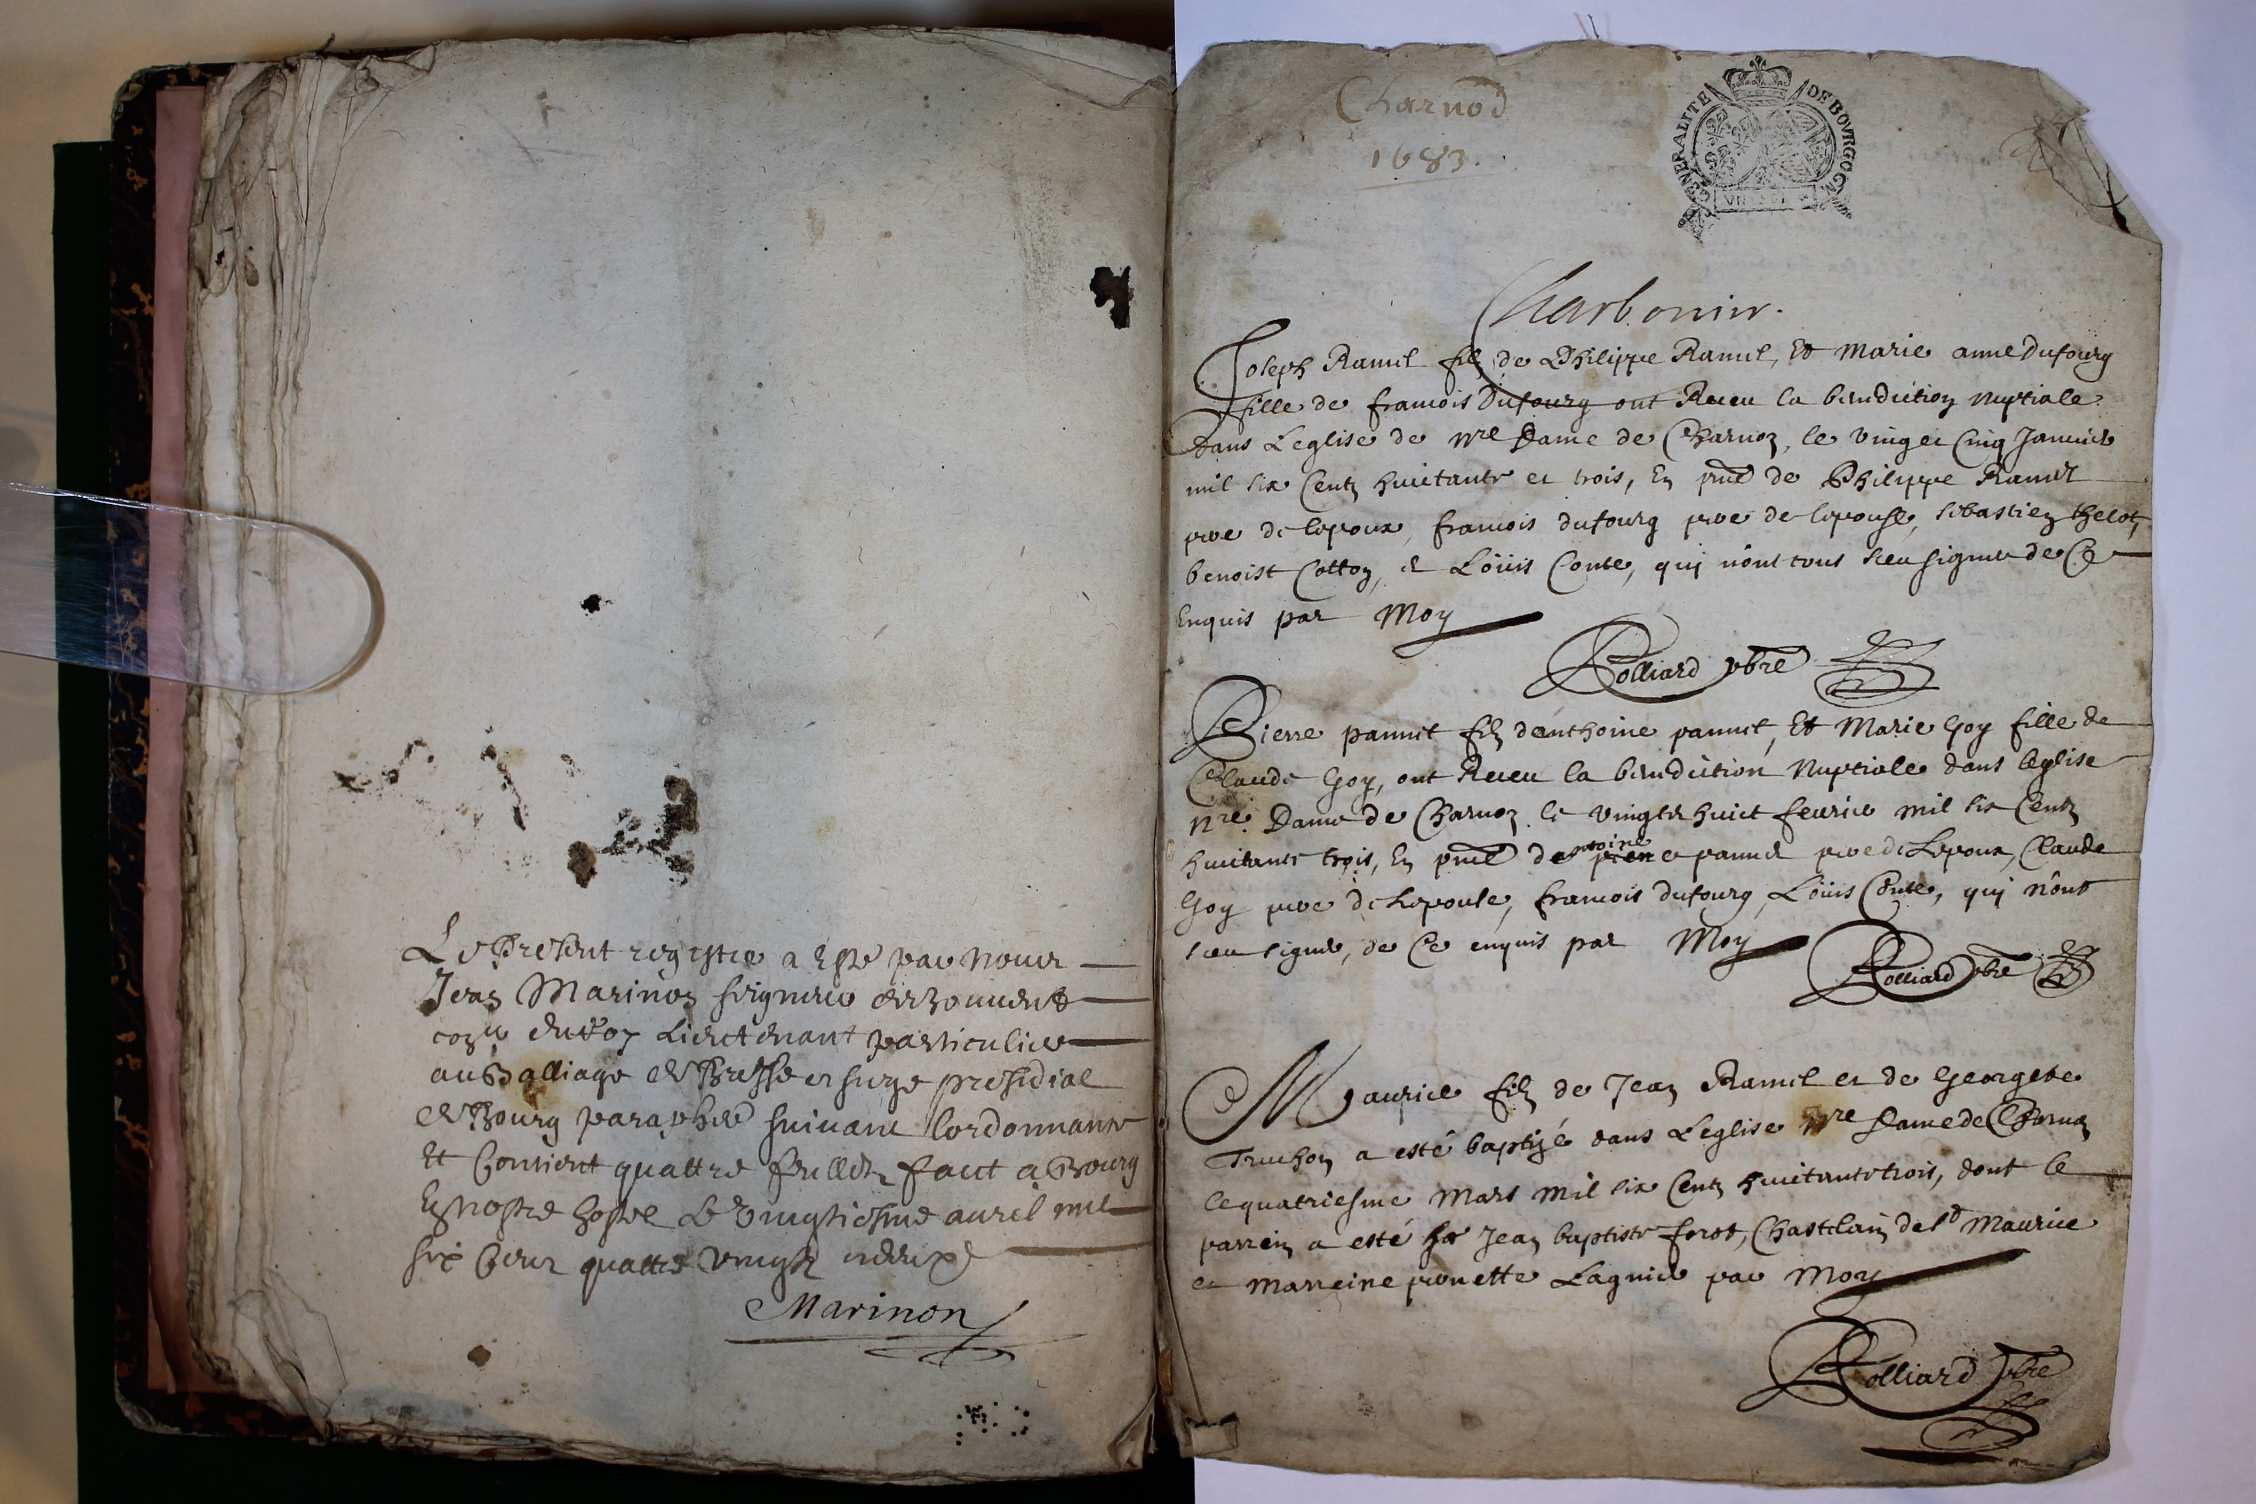 Le Present registre a Este par Nous
Jean Marinon seigneur de
con.er du Roy Lieutenant particulier
au Balliage de Bresse et siege presidial
de Bourg paraphé suivant lordonnance
Et Contient quattre feullets faict a Bourg
En nostre hostel Le vingtiesme avril mil
six Cent quattre vingtz
Marinon
Charnod
1683.
GENERALITE DE BOVRGOGN
Charbonier.
Joseph Ramel filz de Philippe Ramel, Et Marie anne Dufourg
fille de francois Dufourg ont Receu la benediction Nuptiale
Dans Leglise de Nre Dame de Charnoz, le vinget Cinq Janvier
mil six Centz huictante et trois, En pnce de Philippe Ramel
pere de lepoux, francois dufourg pere de lepouse, sebastien thelot,
benoist Cotton, et Loüis Conte, quj nônt tous sceu signer de Ce
Enquis par Moy
Rolliard pbre
Pierre pannet filz danthoine pannet, Et Marie Goy fille de
Claude Goy, ont Receu la benediction Nuptiale dans leglise
Nre Dame de Charnoz le vingtet huict feurier mil six Centz
huictante trois, En pnce de antoine pannet pere de Lepoux, Claude
Goy pere de Lepouse, francois dufourg, Loüis Conte, quj nônt
sceu signer, de Ce enquis par Moy
Rolliard pbre
Maurice filz de Jean Ramel et de Georgette
Truchon a esté baptizé dans Leglise Nre Dame de Charnoz
le quatriesme Mars mil six Centz huictante trois, dont le
parrein a esté sr Jean baptiste foret, Chastelain de st Maurice
et marreine pernette Lagnier par Moy
Rolliard pbre